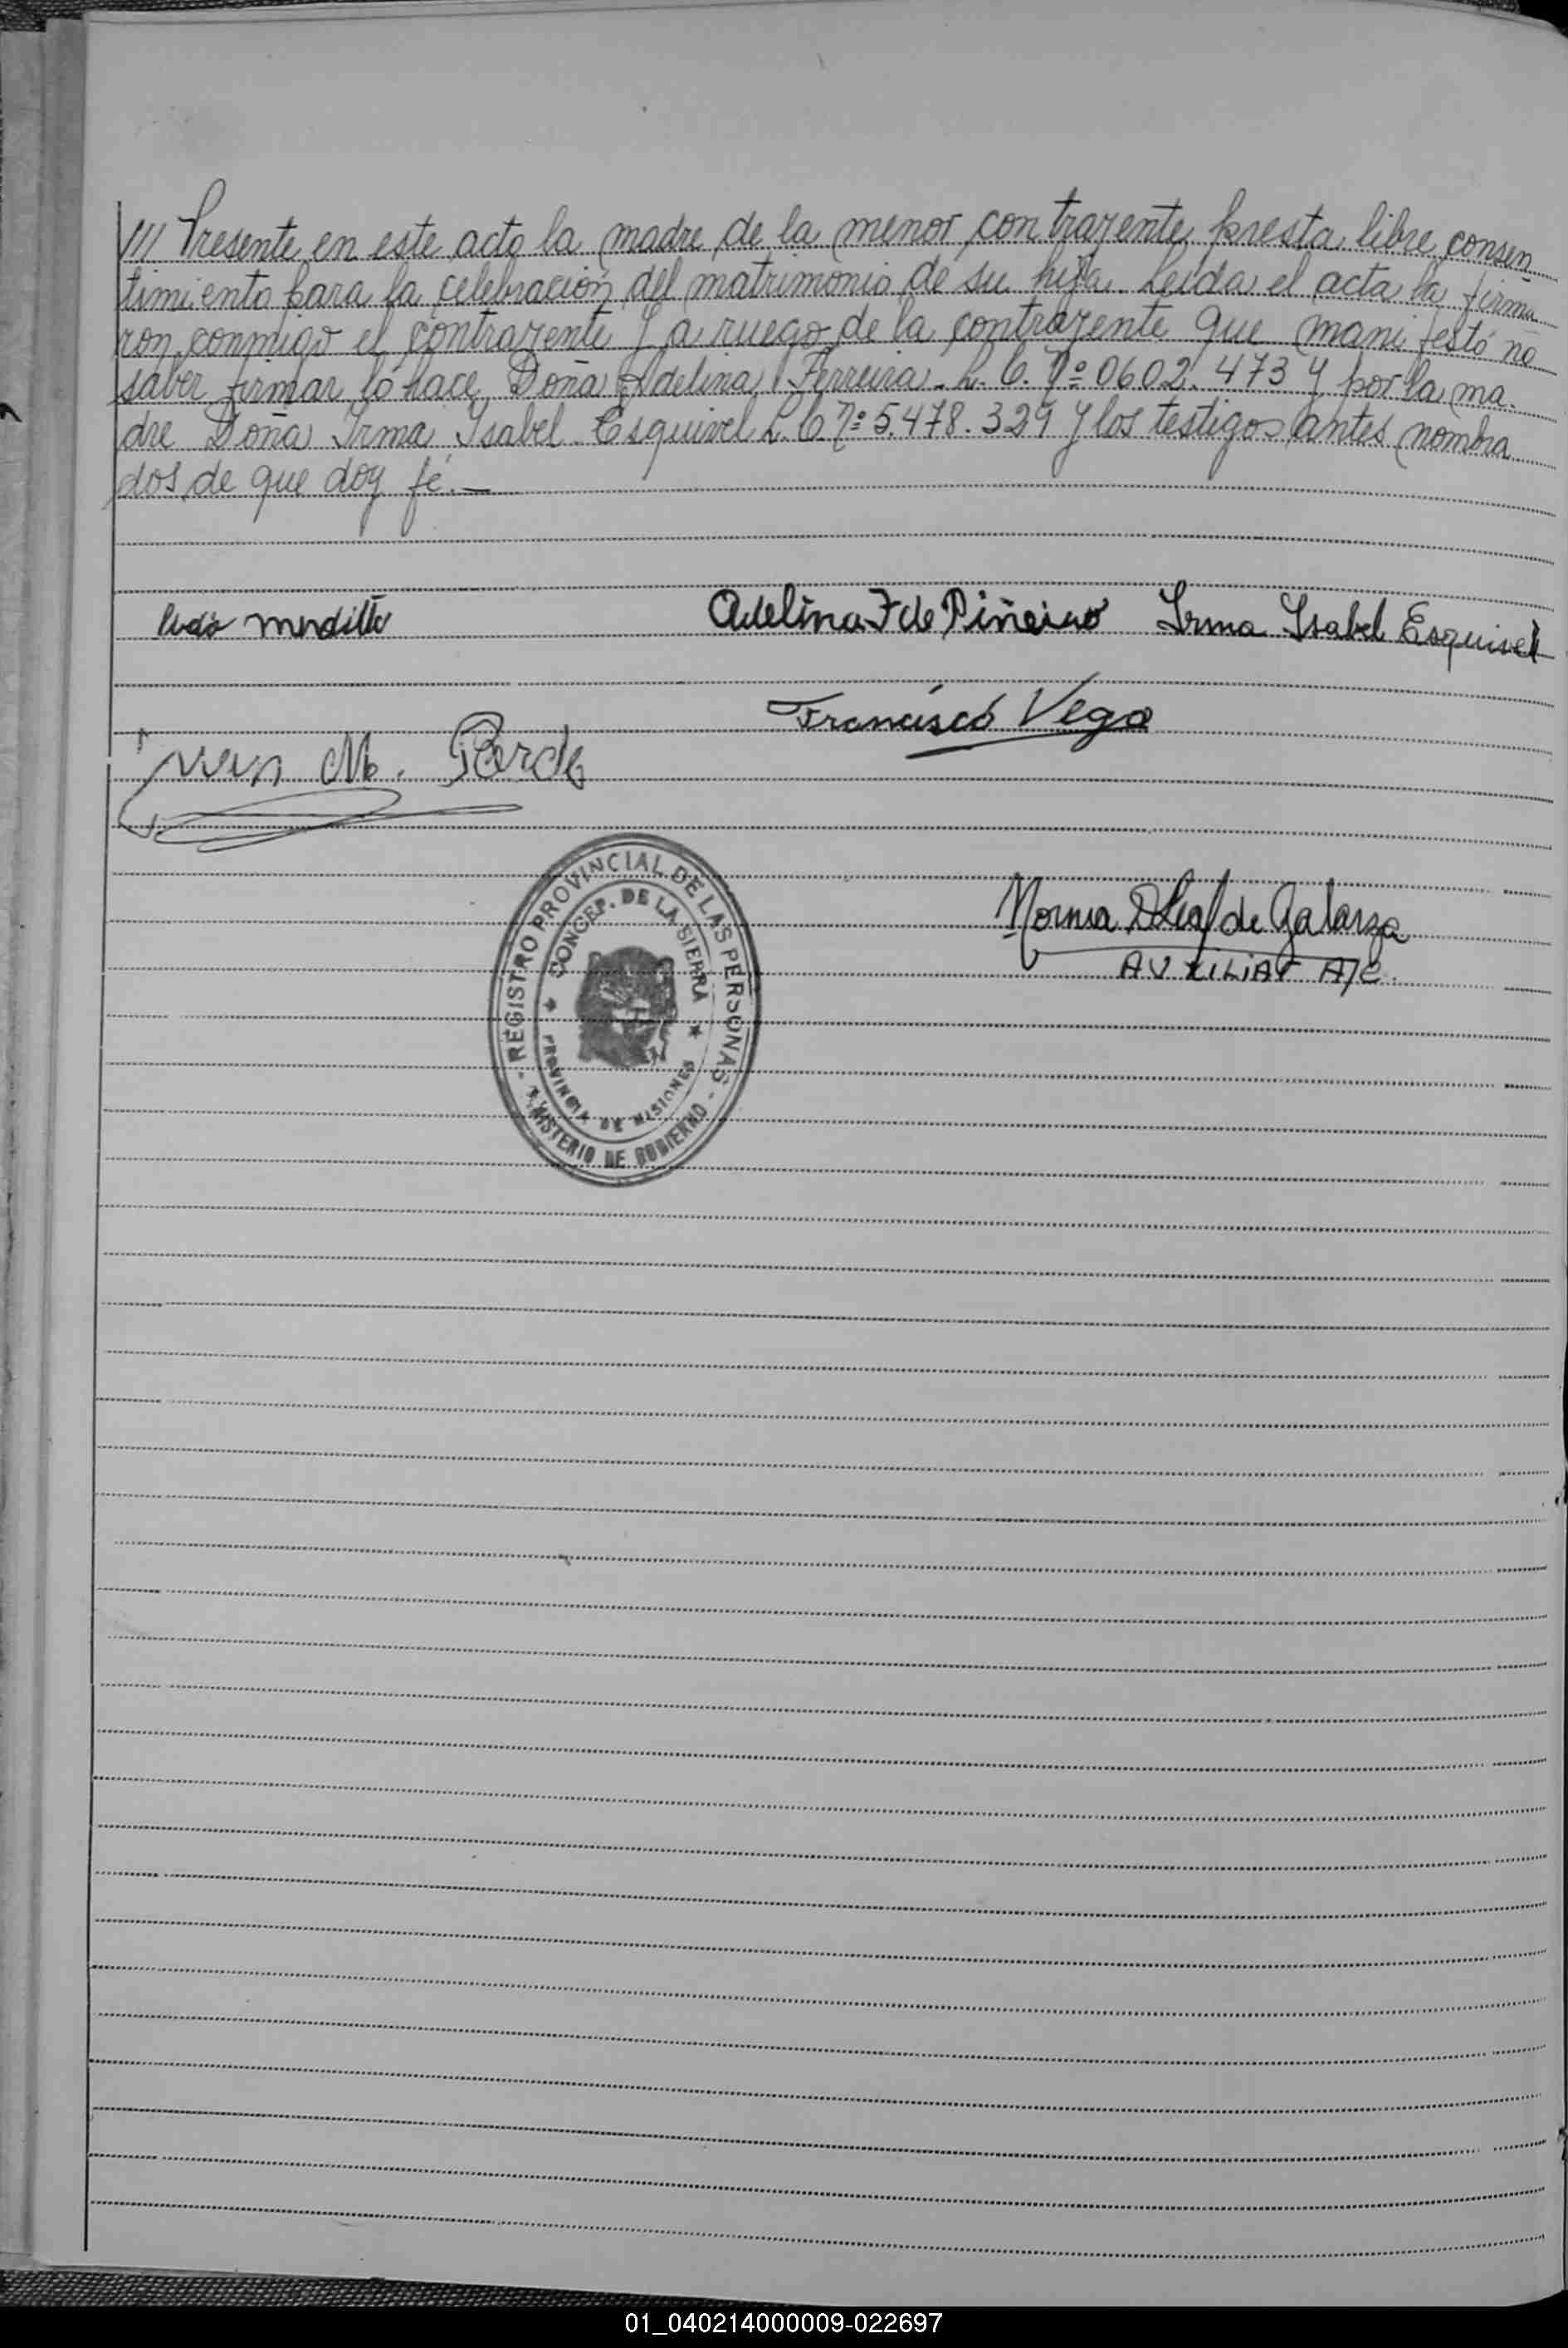 /// Presente en este acto la madre de la menor contrayente presta libre consen
timiento para la celebración del matrimonio de su hija. Leída el acta la firma
ron conmigo el contrayente y a ruego de la contrayente que manifestó no
saber firmar lo hace Doña Adelina Ferreira. L. C. Nº 0602.473 y por la ma.
dre Doña Irma Isabel Esquivel L. C. Nº 5.478.329 y los testigos antes nombra
dos de que doy fé.—
Adelina F de Piñeiro Irma Isabel Esquivel
Francisco Vega
M.
Norma de Galarza
AUXILIAR A/C.
- REGISTRO PROVINCIAL DE LAS PERSONAS -
CONCEP. DE LA SIERRA
PROVINCIA DE MISIONES
MINISTERIO DE GOBIERNO
01_040214000009-022697